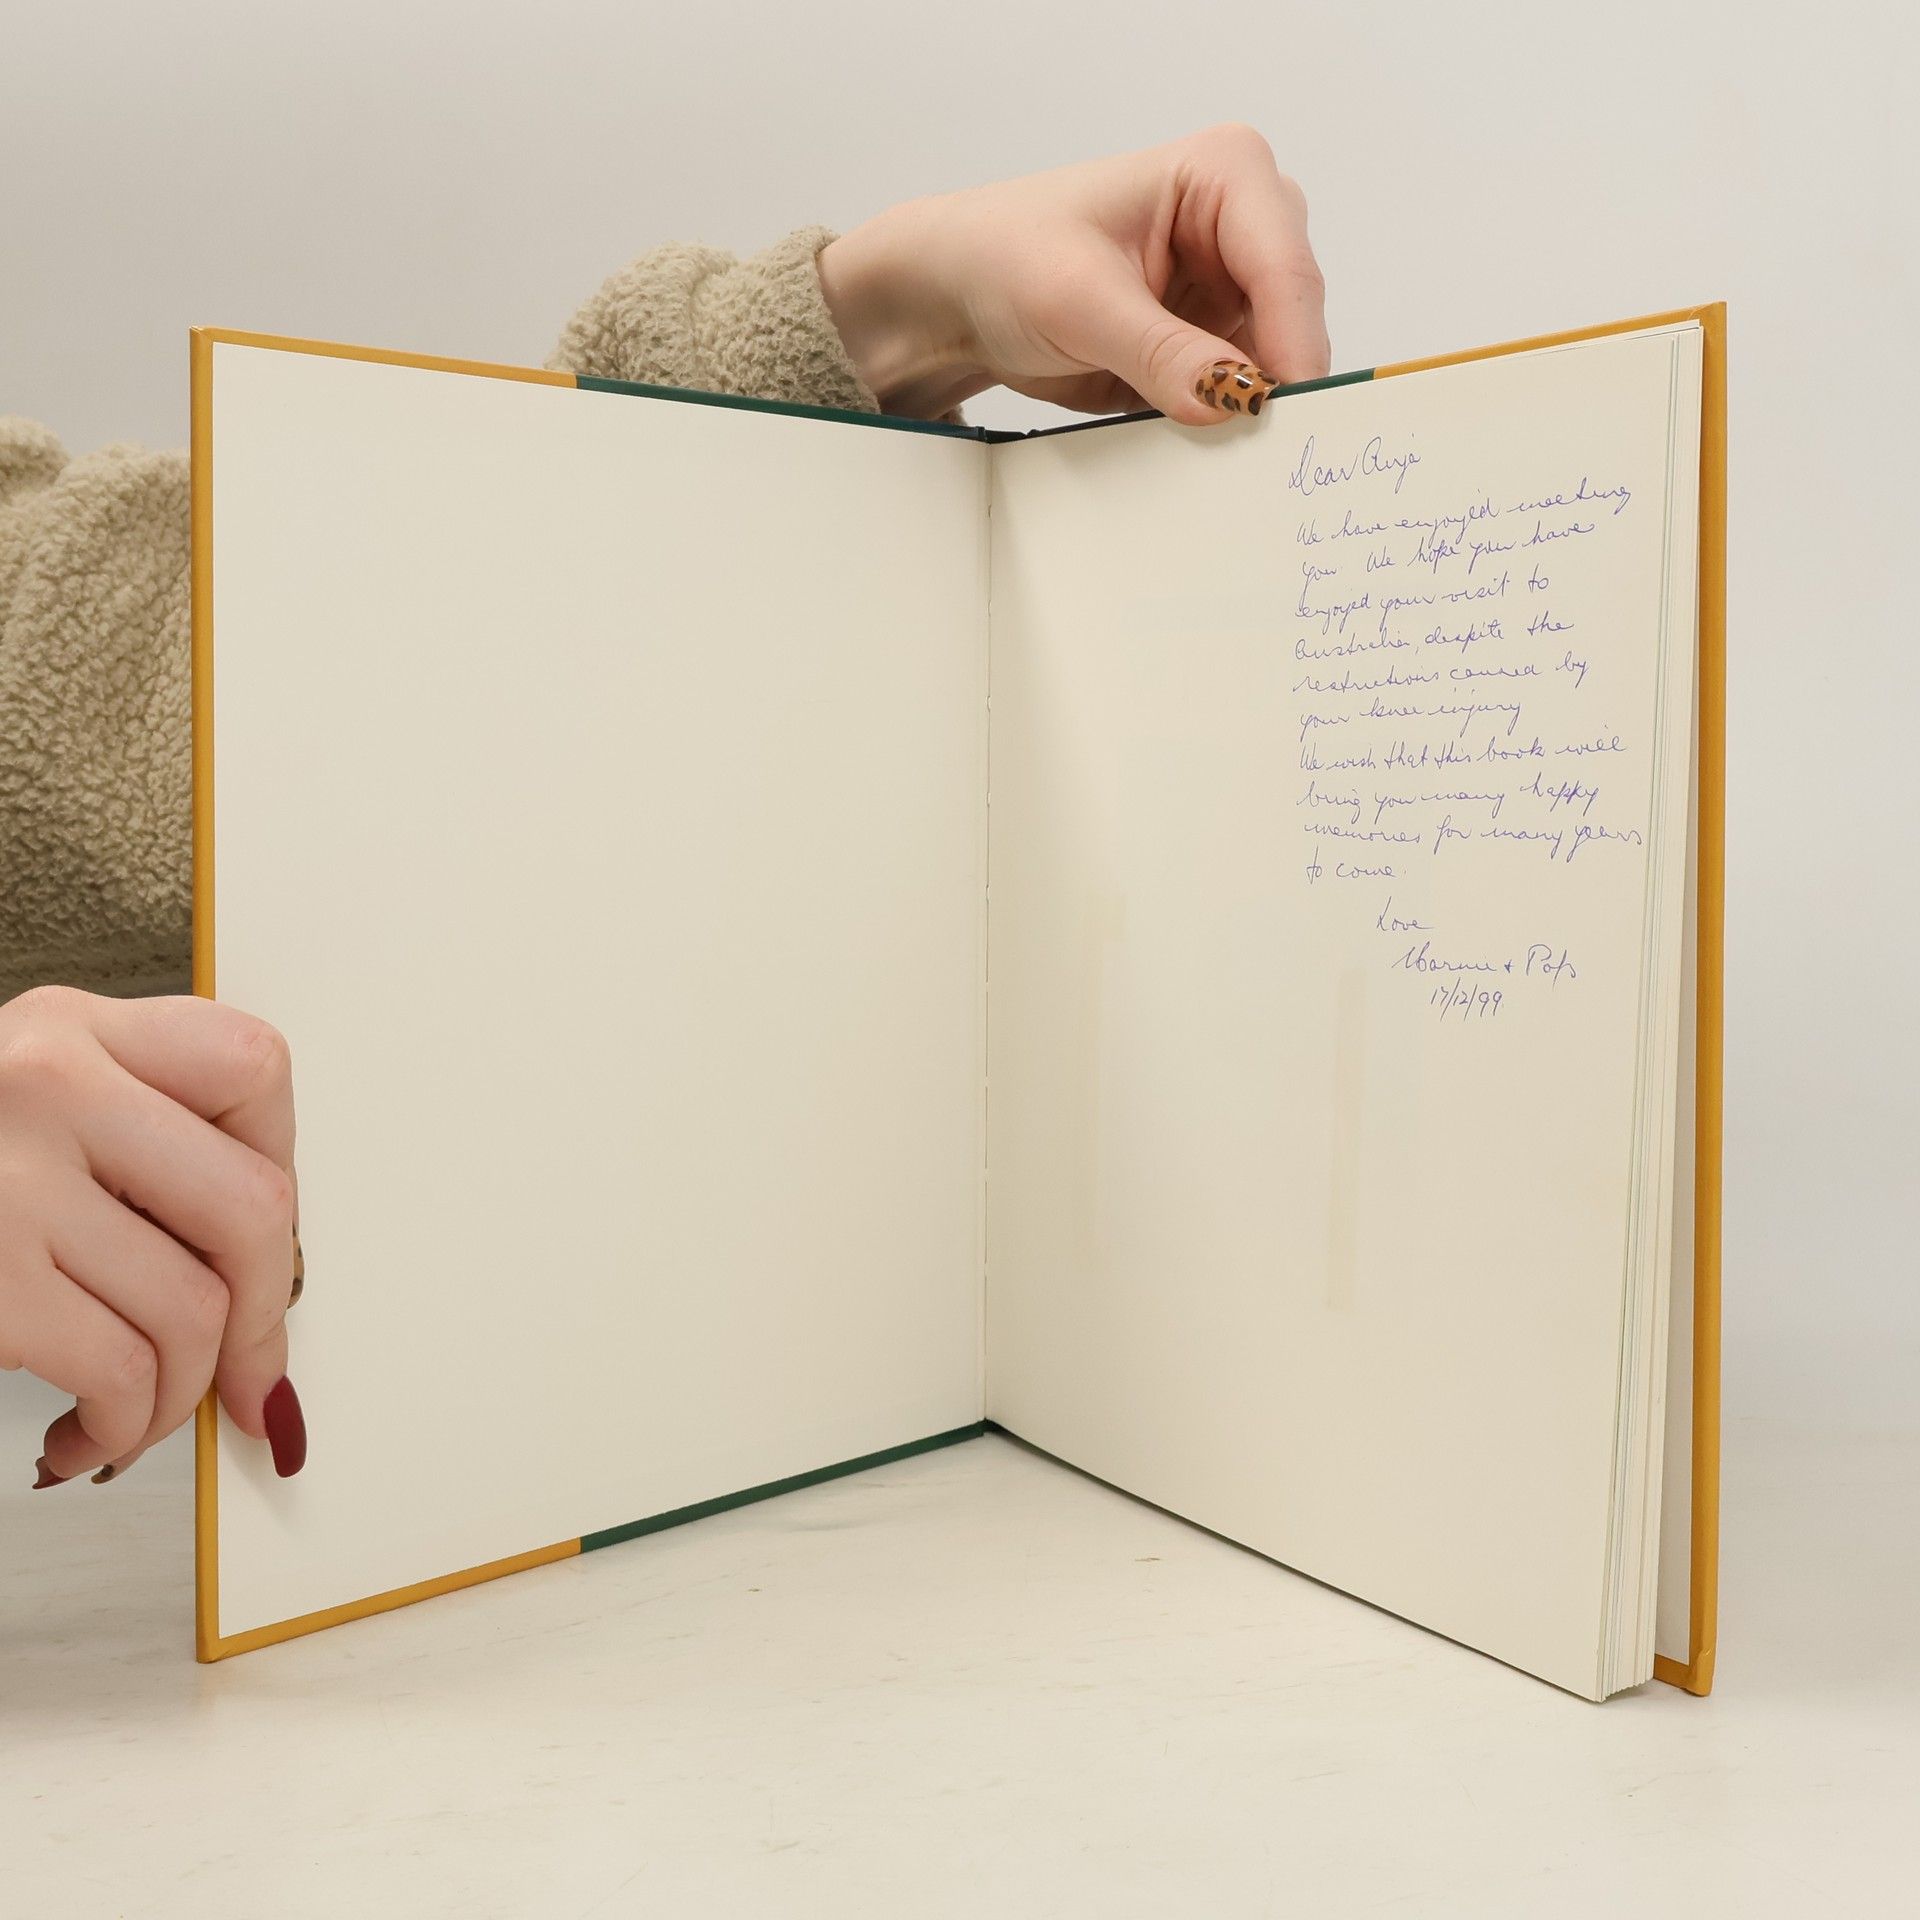 Dear Anja
We have enjoyed meeting
you. We hope you have
enjoyed your visit to
Australia, despite the
restrictions caused by
your knee injury
We wish that this book will
bring you many happy
memories for many years
to come.
Love
+ Pops
17/12/99